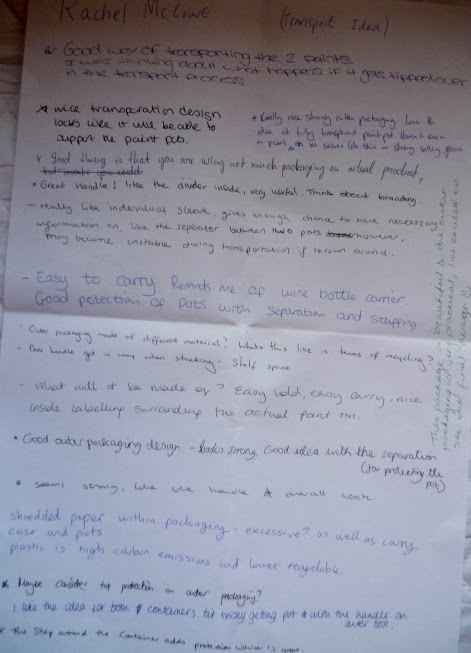 Rachel McCourt (Transport Idea)
* Good way of transporting the 2 paints
I was thinking about what happens if it gets tipped over
in the transport process
* nice transporation design
looks like it will be able to
support the paint pot.
* Really nice strong outer packaging love the
idea of fully transparent paint pot. Haven't seen
a paint like this - strong selling
* Good thing is that you are using not much packaging on actual product,
• Great handle! like the divider inside, very useful. Think about branding.
- really like individual sleeve, gives enough chance to have necessary
information on. Like the separator between two pots however,
may become unstable during transportation if thrown around.
- Easy to carry. Reminds me of wine bottle carrier.
Good protection of pots with separation and stuffing
- Outer packaging made of different material? What's this like in terms of recycling?
- Does handle get in way when stacking - shelf space
- What will it be made of? Easy hold, easy carry. nice
inside labelling surrounding the actual paint tin.
• Good outer packaging design. - looks strong. Good idea with the separation
(for protecting the
pot)
• seems strong, like the handle & overall look
shredded paper within packaging - excessive? as well as carry
case and pots
plastic is high carbon emissions and lower recyclable
* Maybe consider top protection on outer packaging?
I like the idea for both containers, but tricky getting pot with the handle on
outer case.
* The strap around the container adds protection which is good.
This package is beautiful & the outer
packaging is very practical, I'm excited to
see the final design :)